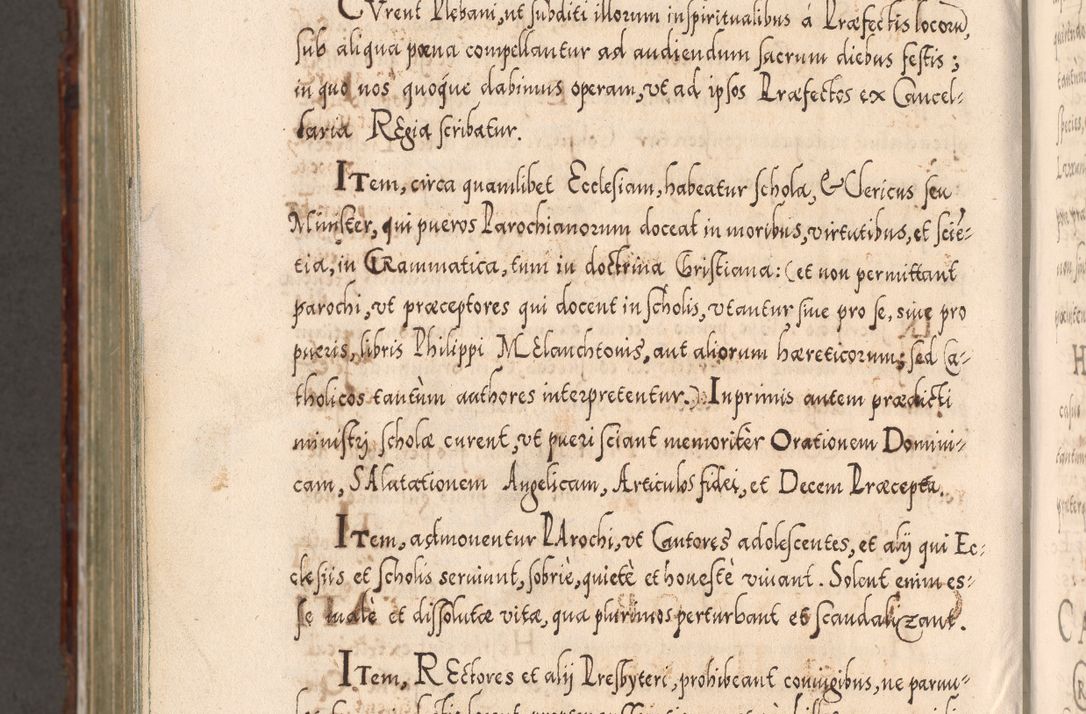 CVrent Plebani, ut subditi illorum in spiritualibus á Præfectis locorũ,
sub aliqua pœna compellantur ad audiendum sacrum diebus festis;
in quo nos quoque dabimus operam, vt ad ipsos Præfectos ex Cancel=
laria REgia scribatur.
ITem, circa quamlibet Ecclesiam, habeatur schola, & Clericus seu
Minister, qui pueros Parochianorum doceat in moribus, virtutibus, et sciẽ=
tia, in GRammatica, tum in doctrina Cristiana: (et non permittant
parochi, vt præceptores qui docent in scholis, vtantur siue pro se, siue pro
pueris, libris Philippi MElanchtonis, aut aliorum hæreticorum; sed Ca=
tholicos tantùm authores interpretentur.) Inprimis autem prædicti
ministri scholæ curent, vt pueri sciant memoriter Orationem Domini=
cam, SAlutationem Angelicam, Articulos fidei, et Decem Præcepta.
ITem, admoneantur PArochi, vt Cantores adolescentes, et alij qui Ec=
clesiis et scholis seruiunt, sobriè, quietè et honestè viuant. Solent enim es=
se malè et dissolutæ vitæ, qua plurimos perturbant et scandalizant.
ITem, REctores et alij Presbyteri, prohibeant coniugibus, ne paruu=